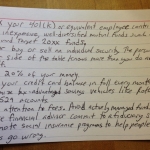 your 401(k) or equivalent employee contri
inexpensive, well-diversified mutual funds such
Target 20XX funds.
buy or sell an individual security. The person
side of the table knows more than you do
20% of your money.
your credit card balance in full every month
tax-advantaged savings vehicles like
529 accounts.
attention to fees. Avoid actively managed funds.
financial advisor commit to a fiduciary s
mote social insurance programs to help people
s go wrong.